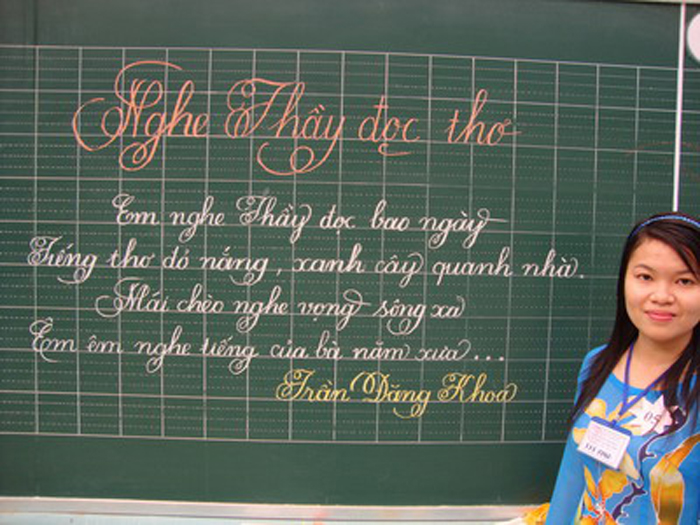 Nghe Thầy đọc thơ
Em nghe Thầy đọc bao ngày
Tiếng thơ đỏ nắng, xanh cây quanh nhà.
Mái chèo nghe vọng sông xa
Êm êm nghe tiếng của bà năm xưa...
Trần Đăng Khoa